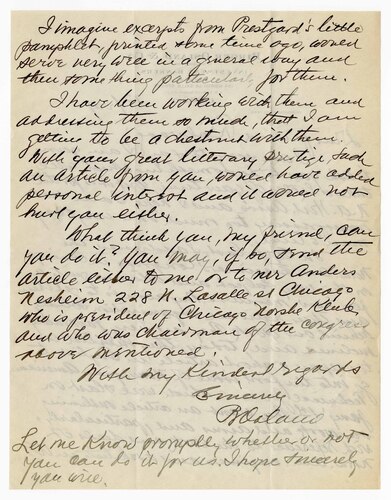 I imagine excerpts from Prestgard's little
pamphlet, printed some time ago, would
serve very well in a general way and
then something particular, for them.
I have been working with them and
addressing them so much, that I am
getting to be a chestnut with them.
With your great litterary prestige such
an article from you, would have added
personal interest and it would not
hurt you either.
What think you, my friend, can
you do it? You may, if so, send the
article either to me or to mr Anders
Nesheim 228 N. Lasalle st Chicago
who is president of Chicago Norske Klub,
and who was chairman of the congress
above mentioned.
With my kindest regards
Sincerely
Let me know promptly whether or not
you can do it for us. I hope sincerely
you will.